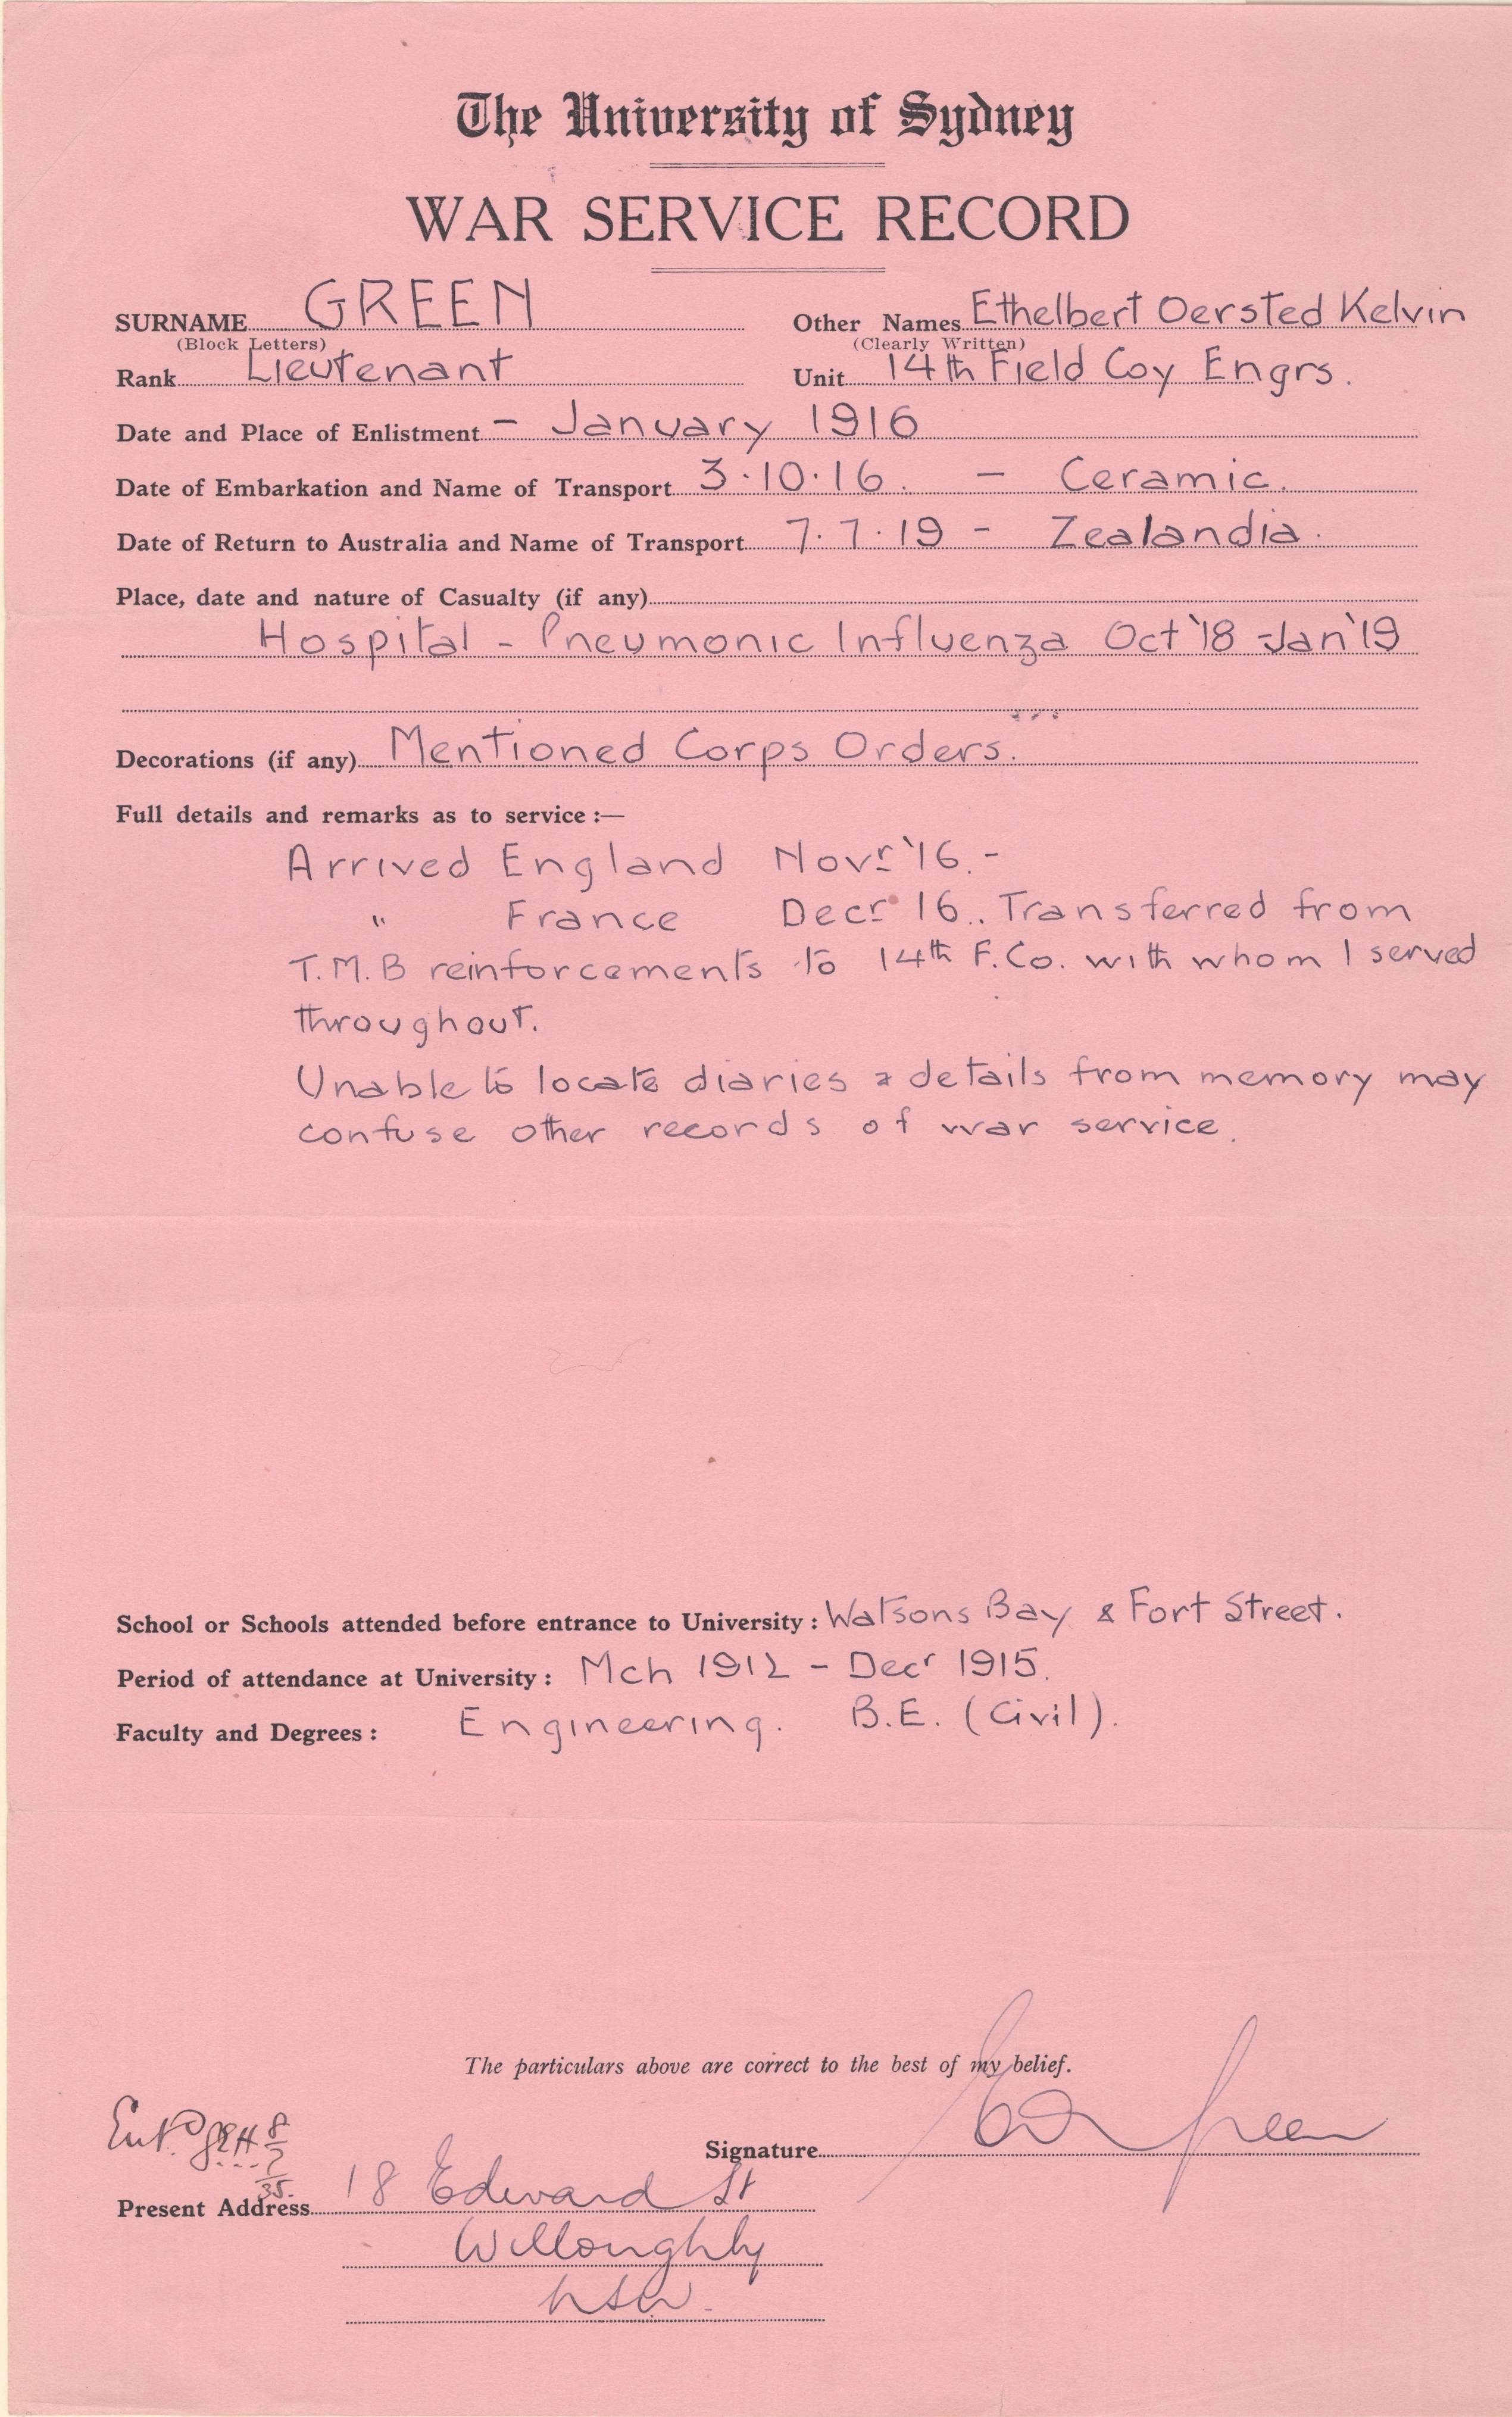 The University of Sydney
WAR SERVICE RECORD
SURNAME GREEN Other Names Ethelbert Oersted Kelvin
(Block Letters) (Clearly Written)
Rank Lieutenant Unit 14th Field Coy Engrs.
Date and Place of Enlistment - January 1916
Date of Embarkation and Name of Transport 3.10.16. - Ceramic.
Date of Return to Australia and Name of Transport 7.7.19 - Zealandia.
Place, date and nature of Casualty (if any)
Hospital - Pneumonic Influenza Oct '18 - Jan '19
Decorations (if any) Mentioned Corps Orders.
Full details and remarks as to service :—
Arrived England Novr '16. -
" France Decr 16. Transferred from
T.M.B reinforcements to 14th F.Co. with whom I served
throughout.
Unable to locate diaries & details from memory may
confuse other records of war service.
School or Schools attended before entrance to University : Watsons Bay & Fort Street.
Period of attendance at University : Mch 1912 - Decr 1915.
Faculty and Degrees : Engineering. B.E. (Civil).
The particulars above are correct to the best of my belief.
Entd 8/7/35.
Signature Green
Present Address 18 Edward St
Willoughby
NSW.